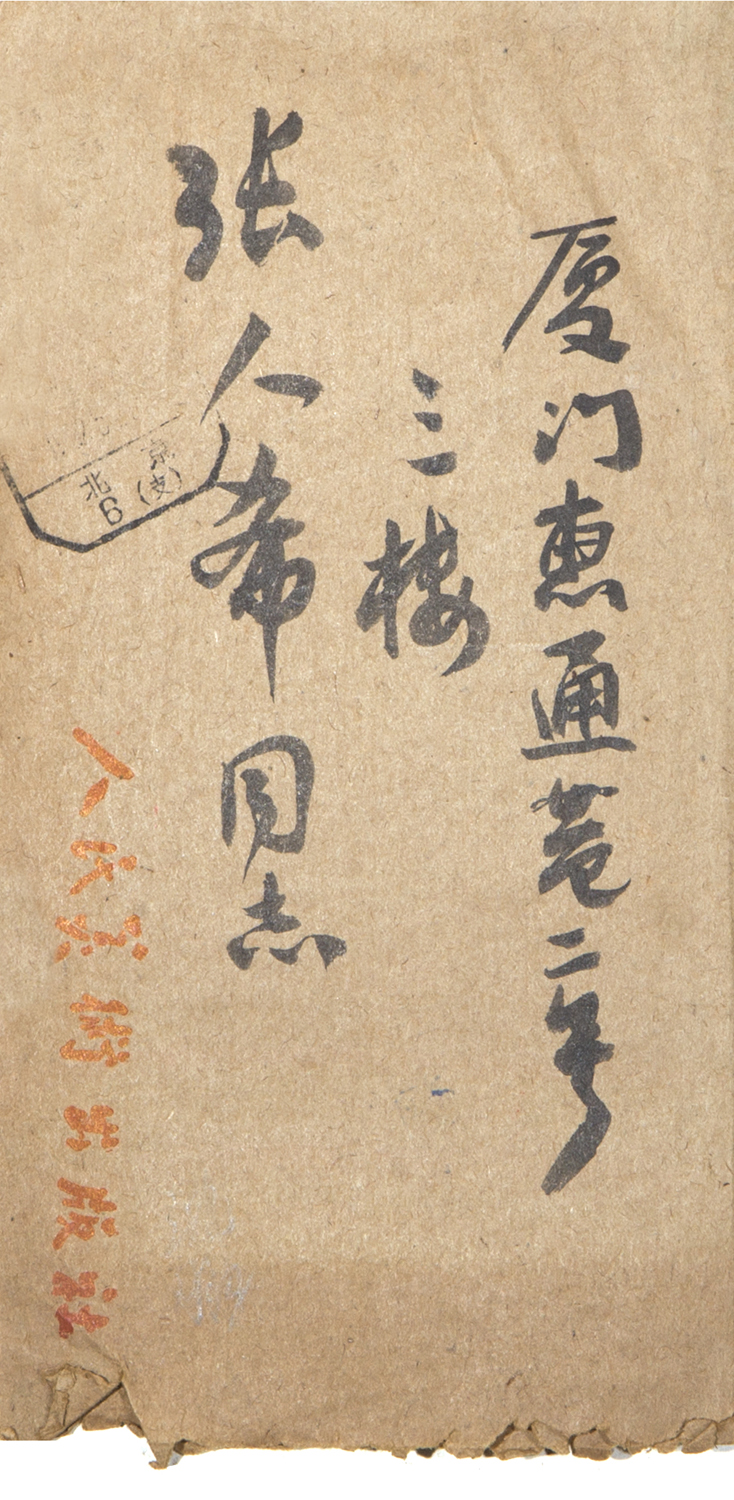 厦门惠通巷二号
三楼
张人希同志
人民美術出版社
北京
6(支)